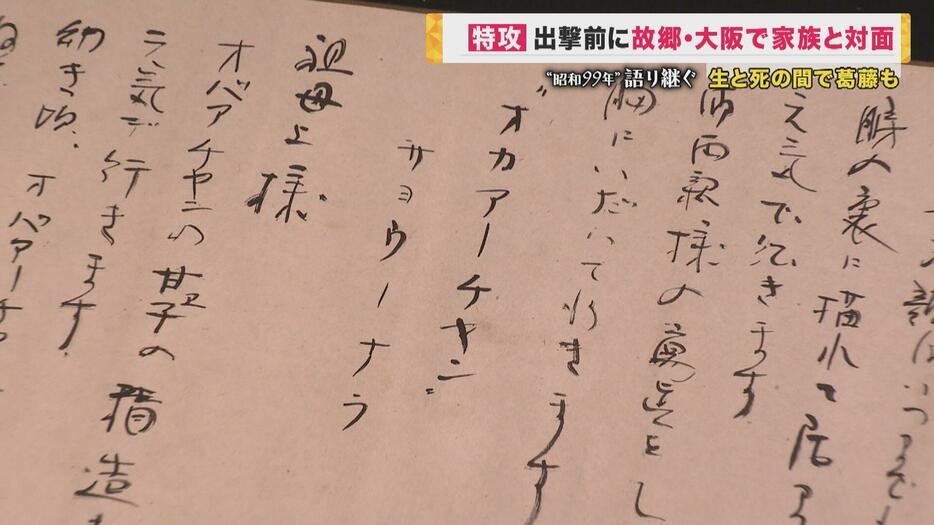 特攻 出撃前に故郷・大阪で家族と対面
“昭和99年”語り継ぐ 生と死の間で葛藤も
はいつまでも
瞼の裏に描れて居
元気で征きます
御両親様の寫真をし
胸にいだいて行きます
“オカアーチヤン”
サヨウーナラ
祖母上様
オバアチヤンの甘子の精造
元気デ行きます
幼き頃、オバアーチ